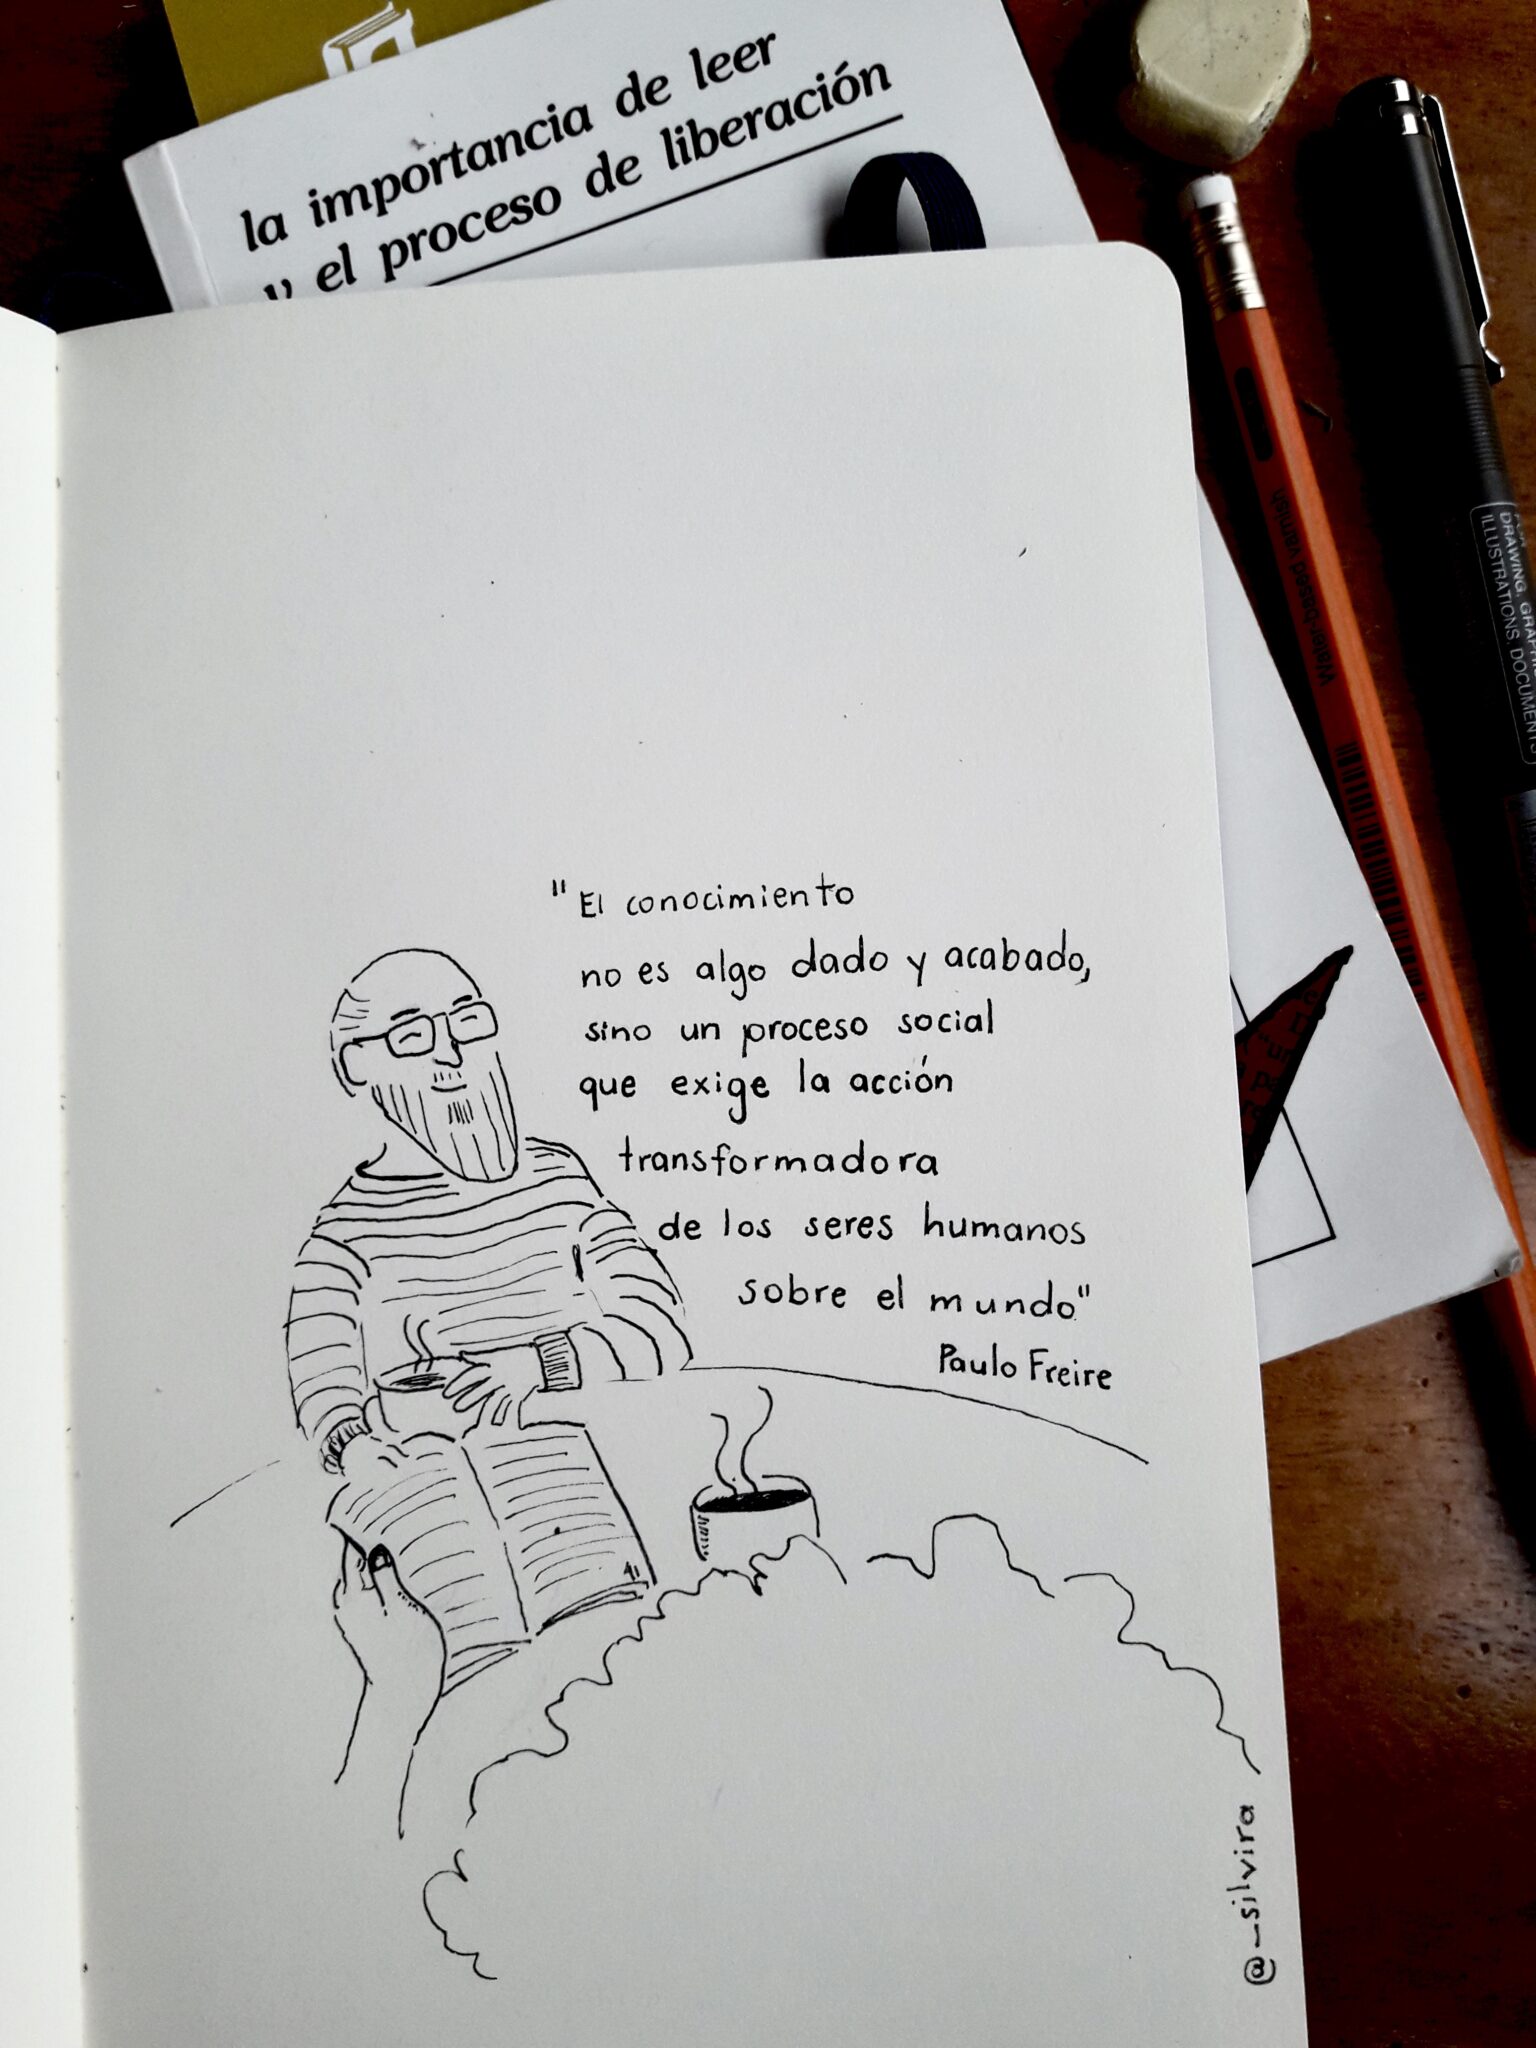 la importancia de leer
y el proceso de liberación
Water-based varnish
DRAWING, GRAPHIC
ILLUSTRATIONS, DOCUMENTS
"El conocimiento
no es algo dado y acabado,
sino un proceso social
que exige la acción
transformadora
de los seres humanos
sobre el mundo"
Paulo Freire
@_silvira